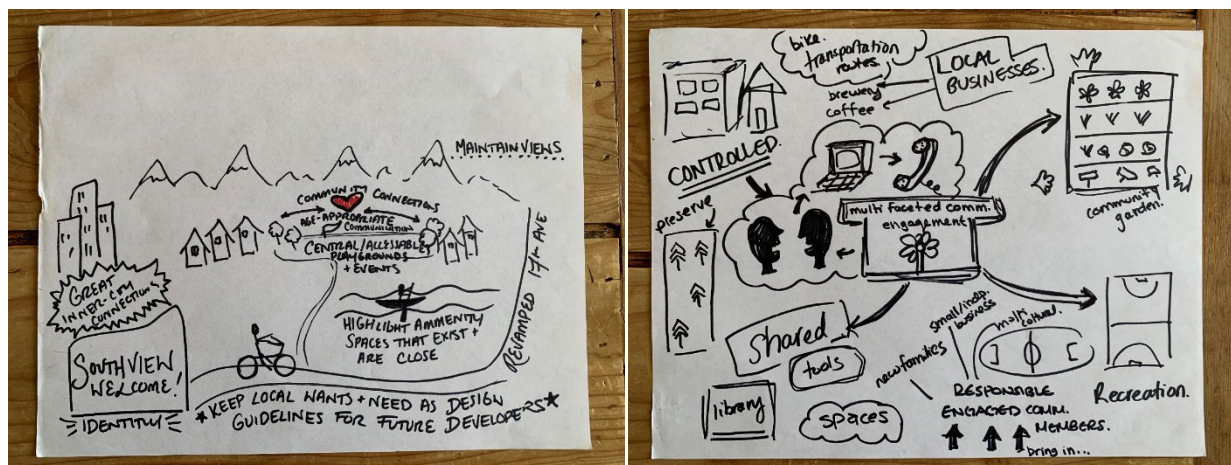 MAINTAIN VIEWS
COMMUNITY CONNECTIONS
AGE-APPROPRIATE
COMMUNICATION
CENTRAL/ACCESSABLE
PLAYGROUNDS
+ EVENTS
GREAT
INNER-CITY
CONNECTION
HIGHLIGHT AMMENITY
SPACES THAT EXIST +
ARE CLOSE
REVAMPED 17th AVE
SOUTHVIEW
WELCOME!
IDENTITY
*KEEP LOCAL WANTS + NEED AS DESIGN
GUIDELINES FOR FUTURE DEVELOPERS*
bike.
transportation
routes.
LOCAL
BUSINESSES.
brewery
coffee
CONTROLLED.
preserve
multi faceted comm.
engagement
community
garden.
Shared
tools
library
spaces
small/indp.
business
multi
cultural.
new families
RESPONSIBLE
ENGAGED COMM.
MEMBERS.
bring in...
Recreation.